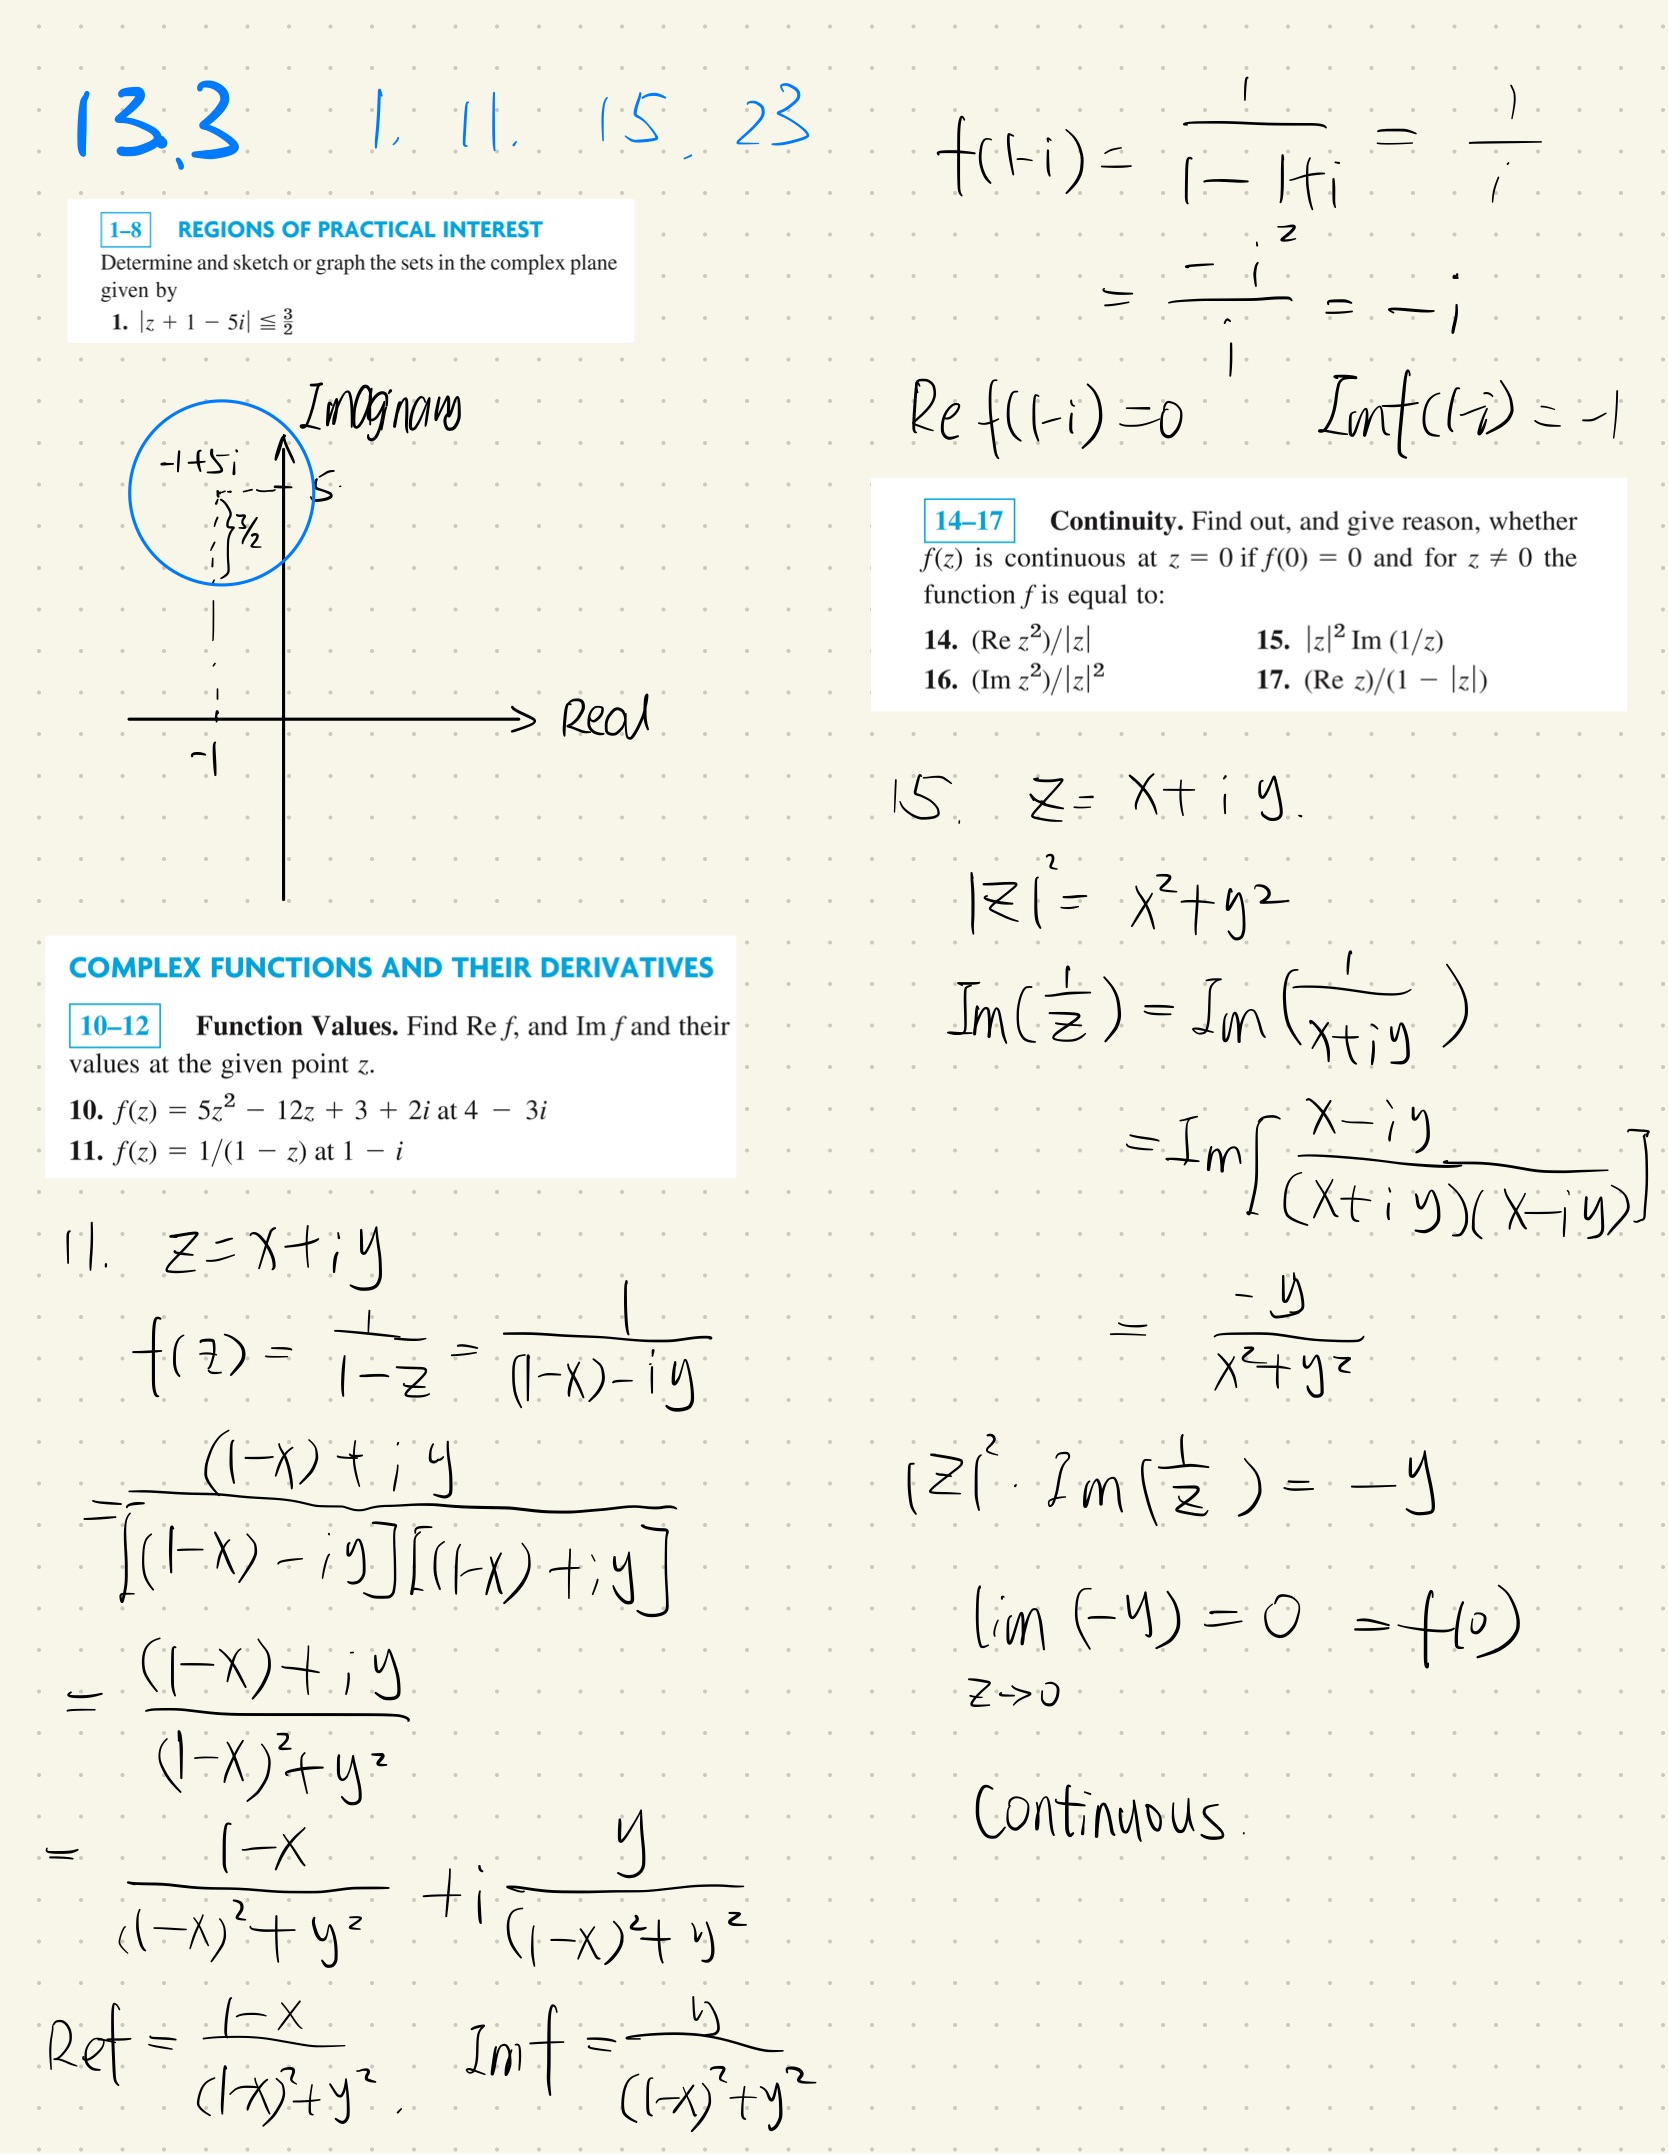 13.3 1. 11. 15. 23
1–8 REGIONS OF PRACTICAL INTEREST
Determine and sketch or graph the sets in the complex plane
given by
1. |z + 1 − 5i| ≦ 3/2
Imaginary
-1+5i
5
3/2
Real
-1
COMPLEX FUNCTIONS AND THEIR DERIVATIVES
10–12 Function Values. Find Re f, and Im f and their
values at the given point z.
10. f(z) = 5z² − 12z + 3 + 2i at 4 − 3i
11. f(z) = 1/(1 − z) at 1 − i
11. z=x+iy
f(z) = 1/(1-z) = 1/((1-x)-iy)
= ((1-x)+iy)/([(1-x)-iy][(1-x)+iy])
= ((1-x)+iy)/((1-x)²+y²)
= (1-x)/((1-x)²+y²) + i y/((1-x)²+y²)
Ref = (1-x)/((1-x)²+y²). Imf = y/((1-x)²+y²)
f(1-i) = 1/(1-1+i) = 1/i
= -i²/i = -i
Re f(1-i)=0 Imf(1-i) = -1
14–17 Continuity. Find out, and give reason, whether
f(z) is continuous at z = 0 if f(0) = 0 and for z ≠ 0 the
function f is equal to:
14. (Re z²)/|z| 15. |z|² Im (1/z)
16. (Im z²)/|z|² 17. (Re z)/(1 − |z|)
15. z= x+iy.
|z|² = x²+y²
Im(1/z) = Im(1/(x+iy))
=Im[(x-iy)/((x+iy)(x-iy))]
= -y/(x²+y²)
|z|² · Im(1/z) = -y
lim (-y) = 0 =f(0)
z→0
Continuous.